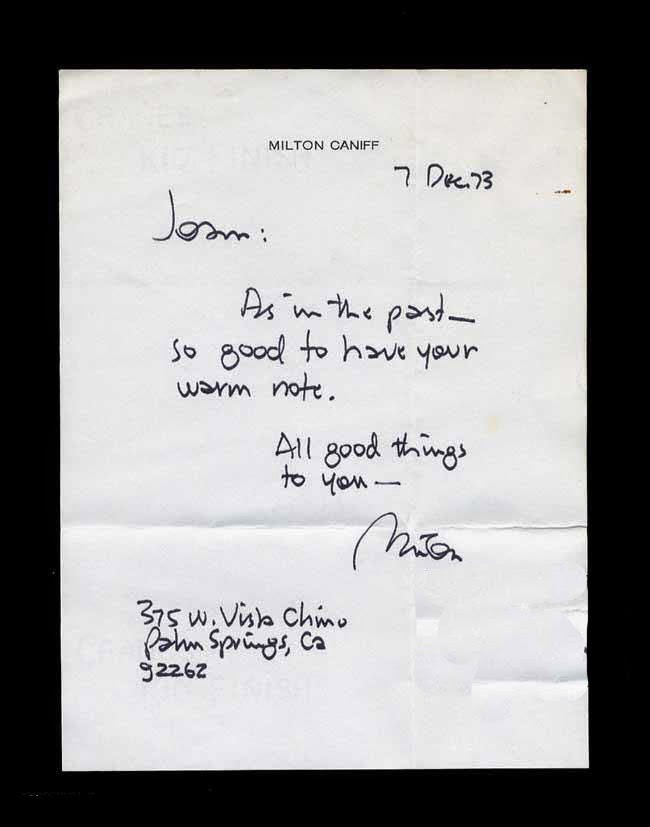 MILTON CANIFF
7 Dec. 73
Joan:
As in the past —
so good to have your
warm note.
All good things
to you —
Milton
375 W. Vista Chino
Palm Springs, Ca
92262